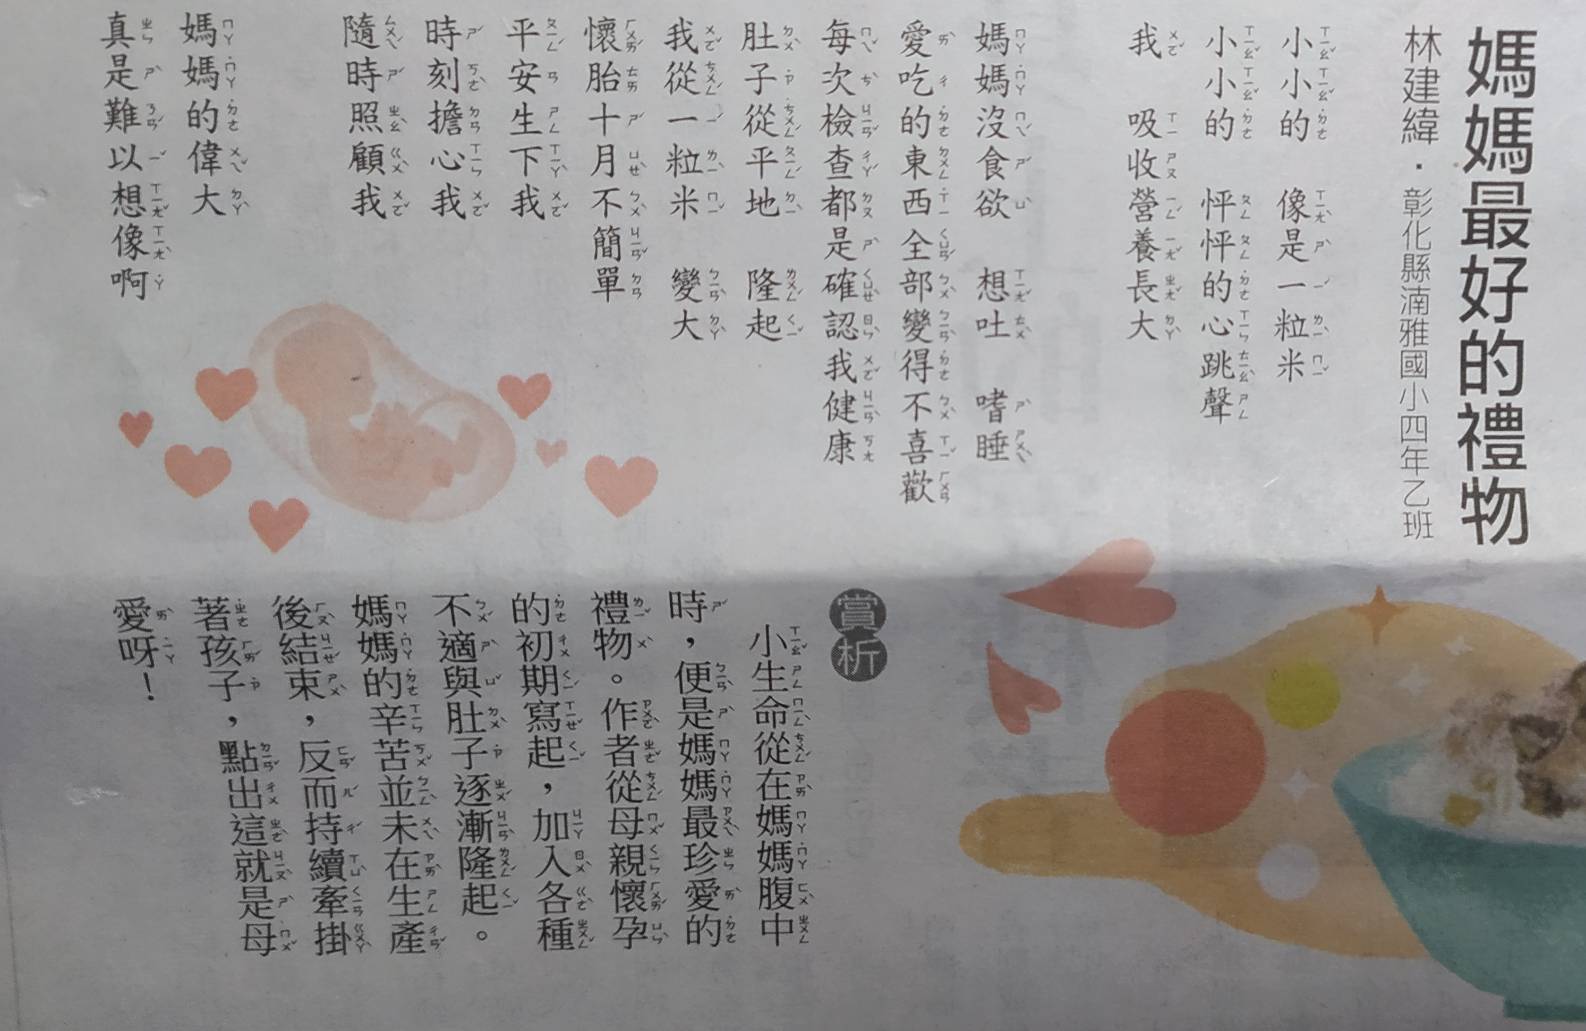 媽媽最好的禮物
林建緯・彰化縣湳雅國小四年乙班
小小的　像是一粒米
小小的　怦怦的心跳聲
我　吸收營養長大
媽媽沒食欲　想吐　嗜睡
愛吃的東西全部變得不喜歡
每次檢查都是確認我健康
肚子從平地　隆起
我從一粒米　變大
懷胎十月不簡單
平安生下我
時刻擔心我
隨時照顧我
媽媽的偉大
真是難以想像啊
賞析
小生命從在媽媽腹中
時，便是媽媽最珍愛的
禮物。作者從母親懷孕
的初期寫起，加入各種
不適與肚子逐漸隆起。
媽媽的辛苦並未在生產
後結束，反而持續牽掛
著孩子，點出這就是母
愛呀！